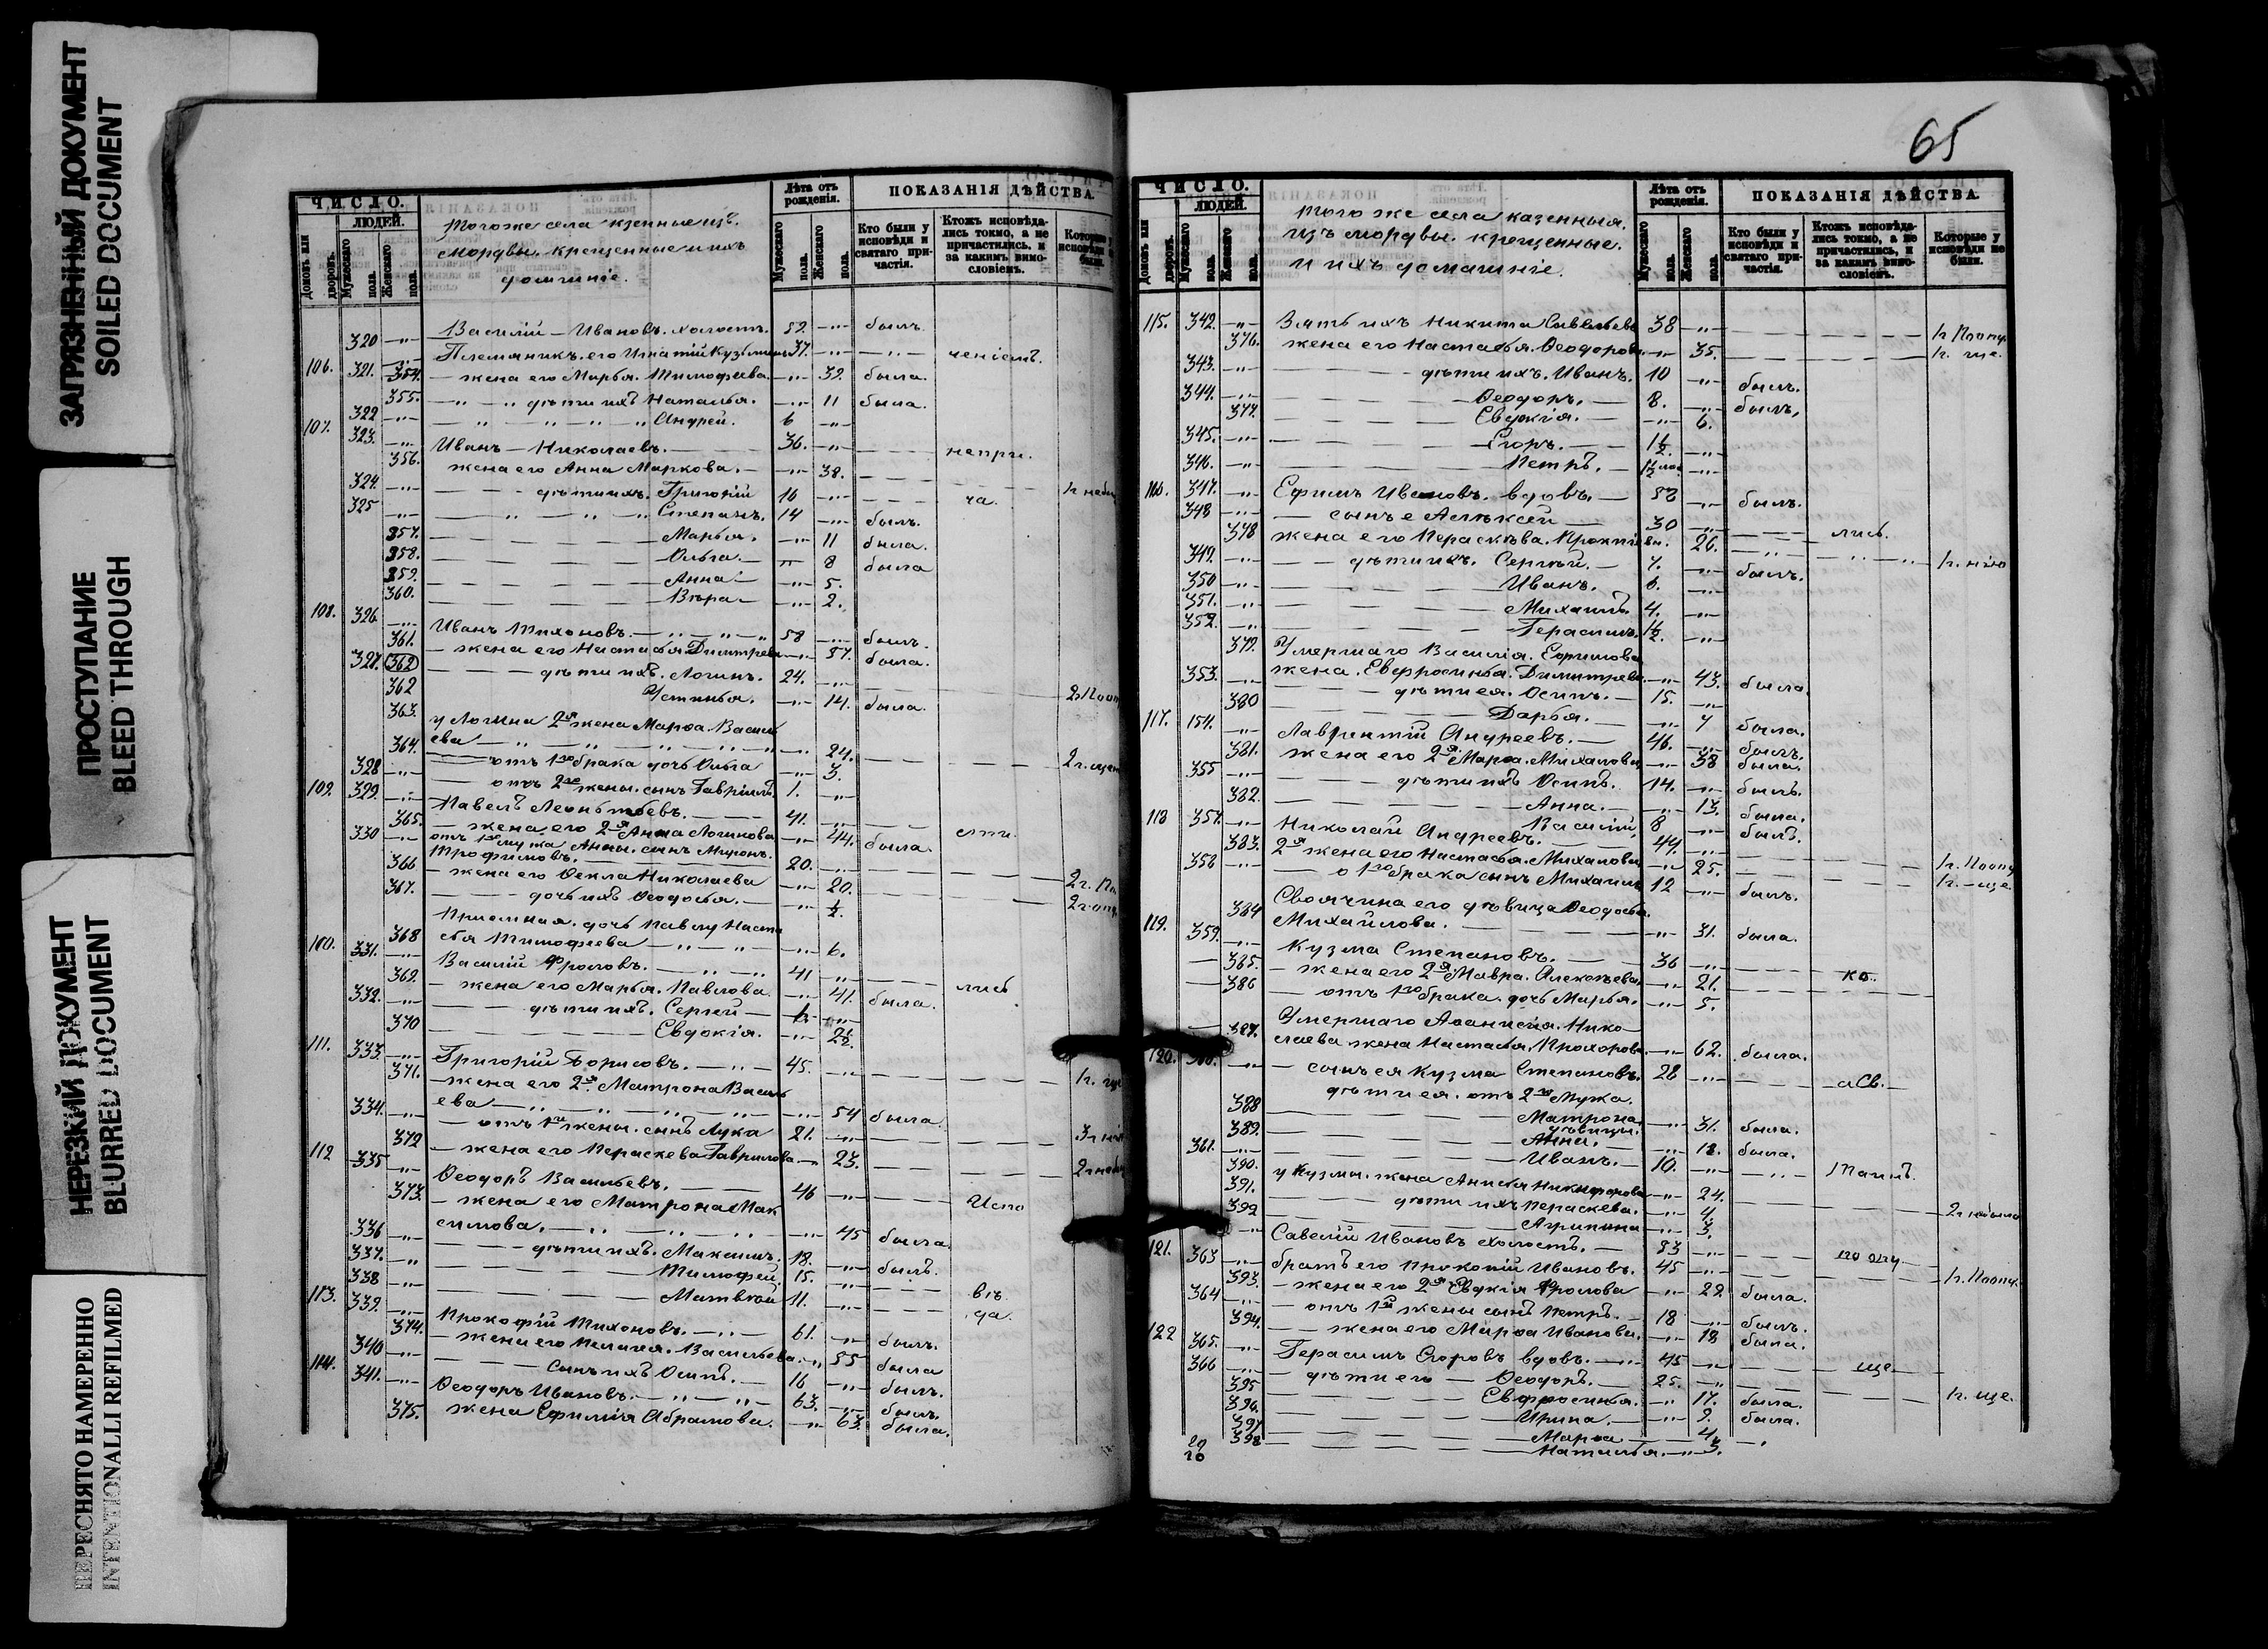 ЗАГРЯЗНЕННЫЙ ДОКУМЕНТ
SOILED DOCUMENT
ПРОСТУПАНИЕ
BLEED THROUGH
НЕРЕЗКИЙ ДОКУМЕНТ
BLURRED DOCUMENT
ПЕРЕСНЯТО НАМЕРЕННО
INTENTIONALLI REFILMED
ЧИСЛО.
ЛЮДЕЙ.
Домовъ или дворовъ.
Мужескаго пола.
Женскаго пола.
Тогоже села
мордвы. крещенные и ихъ
Лѣта отъ рожденія.
Мужескаго пола.
Женскаго пола.
ПОКАЗАНІЯ ДѢЙСТВА.
Кто были у исповѣди и святаго причастія.
Ктожъ исповѣдались токмо, а не причастились, и за какимъ вимословіемъ.
320 Василій Ивановъ. холостъ. 52. былъ.
Племянникъ его Игнатій Кузьминъ 37. ченіемъ.
106. 321. 354. жена его Марья. Тимофеева. 32. была.
355. дѣти ихъ Наталья. 11 была.
322 Андрей. 6
107. 323. Иванъ Николаевъ. 36.
356. жена его Анна Маркова. 38.
324. дѣти ихъ. Григорій 16 ча.
325 Степанъ. 14 былъ.
357. Марья. 11 была.
358. Ольга. 8 была
359. Анна 5.
360. Вѣра 2.
108. 326. Иванъ Тихоновъ. 58 былъ.
361. жена его Настасья Димитрева 57. была.
327. 362 дѣти ихъ. Логинъ. 24.
362 Устинья. 14. была.
363. у Логина 2я жена Марѳа Василь
ева 24.
364. отъ 1го брака дочь Ольга 3.
328 отъ 2ой жены. сынъ Гавріилъ. 1.
109. 329. Павелъ Леонтьевъ. 41.
365. жена его 2я Анна Логинова 44. была.
330 отъ 1го мужа Анны. сынъ Миронъ.
Трофимовъ. 20.
366 жена его Ѳекла Николаева 20.
367. дочь ихъ Ѳеодосья. ½.
Приемная. дочь Павлу Наста
368 сья Тимофеева 6.
110. 331. Василій Фроловъ. 41 лись
369. жена его Марья. Павлова. 41. была.
332. дѣти ихъ. Сергей
370 Евдокія. 2½.
111. 333 Григорій Борисовъ. 45.
371. жена его 2я Матрона Василь
ева 54 была.
334. отъ 1й жены. сынъ Лука 21.
372 жена его Пераскева Гаврилова 23.
112 335 Ѳеодоръ Васильевъ. 46 Испо
373. жена его Матрона Мак
симова. 45 была.
336 дѣти ихъ. Максимъ. 18. былъ.
337. Тимофей. 15. вѣ
338 Матвѣй 11. да.
113. 339. Прокофій Тихоновъ. 61. былъ.
374. жена его Пелагея. Васильева. 55 была
340 сынъ ихъ Осипъ. 16 былъ.
114. 341. Ѳеодоръ Ивановъ. 63. былъ.
375. жена Ефимія Абрамова. 63. была.
65
ЧИСЛО.
ЛЮДЕЙ.
Домовъ или дворовъ.
Мужескаго пола.
Женскаго пола.
Того же села казенныя.
изъ мордвы. крещенные.
и ихъ домашніе.
Лѣта отъ рожденія.
Мужескаго пола.
Женскаго пола.
ПОКАЗАНІЯ ДѢЙСТВА.
Кто были у исповѣди и святаго причастія.
Ктожъ исповѣдались токмо, а не причастились, и за какимъ вимословіемъ.
Которые у исповѣди не были.
115. 342. Зять ихъ Никита Савельевъ 38
376. жена его Настасья. Ѳеодорова 35.
343. дѣти ихъ. Иванъ. 10 былъ.
344. Ѳеодоръ. 8. былъ.
377. Евдокія. 6.
345. Егоръ. 1½.
346. Петръ.
116. 347. Ефимъ Ивановъ. вдовъ. 52 былъ.
348 сынъ е Алѣксей 30 лись.
378 жена его Пераскѣва. 26.
349. дѣти ихъ. Сергѣй. 7. былъ.
350 Иванъ. 6.
351. Михаилъ 4.
352. Герасимъ. 1½.
379. Умершаго Василія. Ефимова
жена. Евфросинья. Димитрева. 43. была.
353. дѣти ея. Осипъ. 15.
380 Дарья. 7 была.
117. 154. Лаврентій Андреевъ. 46. былъ.
381. жена его 2я Марѳа. Михайлова 38 была.
355 дѣти ихъ Осипъ. 14. былъ.
382. Анна. 13. была.
Василій 8 былъ.
118 357. Николай Андреевъ. 44.
383. 2я жена его Настасья. Михайлова 25.
358 о 1го брака сынъ Михаилъ 12 былъ.
Своячина его дѣвица Ѳеодосья
384 Михайлова. 31. была.
119. 359. Кузма Степановъ. 36 ко
385. жена его 2я Мавра. Алексѣева 21.
386 отъ 1го брака. дочь Марья. 5.
Умершаго Аѳанисія. Нико
387. лаева жена Настасья. Прохорова 62. была.
120. сынъ ея Кузма Степановъ. 28
дѣти ея. отъ 2го мужа.
388 Матрона дѣвица. 31. была.
389. Анна. 18. была.
361. Иванъ. 10.
390. у Кузмы. жена Анисья Никифорова 24.
391. дѣти ихъ Пераскева. 4
392 Агрипина 3.
121. Савелій Ивановъ холостъ. 53
363 братъ его Прокопій Ивановъ. 45
393. жена его 2я Евдкія Фролова 22 была.
364 отъ 1й жены сынъ Петръ. 18 былъ.
394. жена его Марѳа Иванова. 18 была.
122 365. Герасимъ Егоровъ вдовъ. 45 ще.
366 дѣти его Ѳеодоръ. 25. ще.
395 Евфросинья. 17. была.
396. Ирина. 9. была.
397 Марѳа 4.
398 Наталья. 3.
20
20